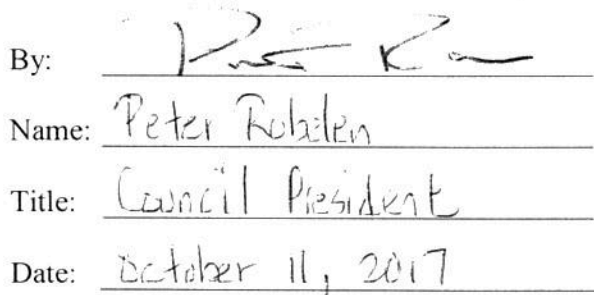 By:
Name: Peter
Title: Council President
Date: October 11, 2017